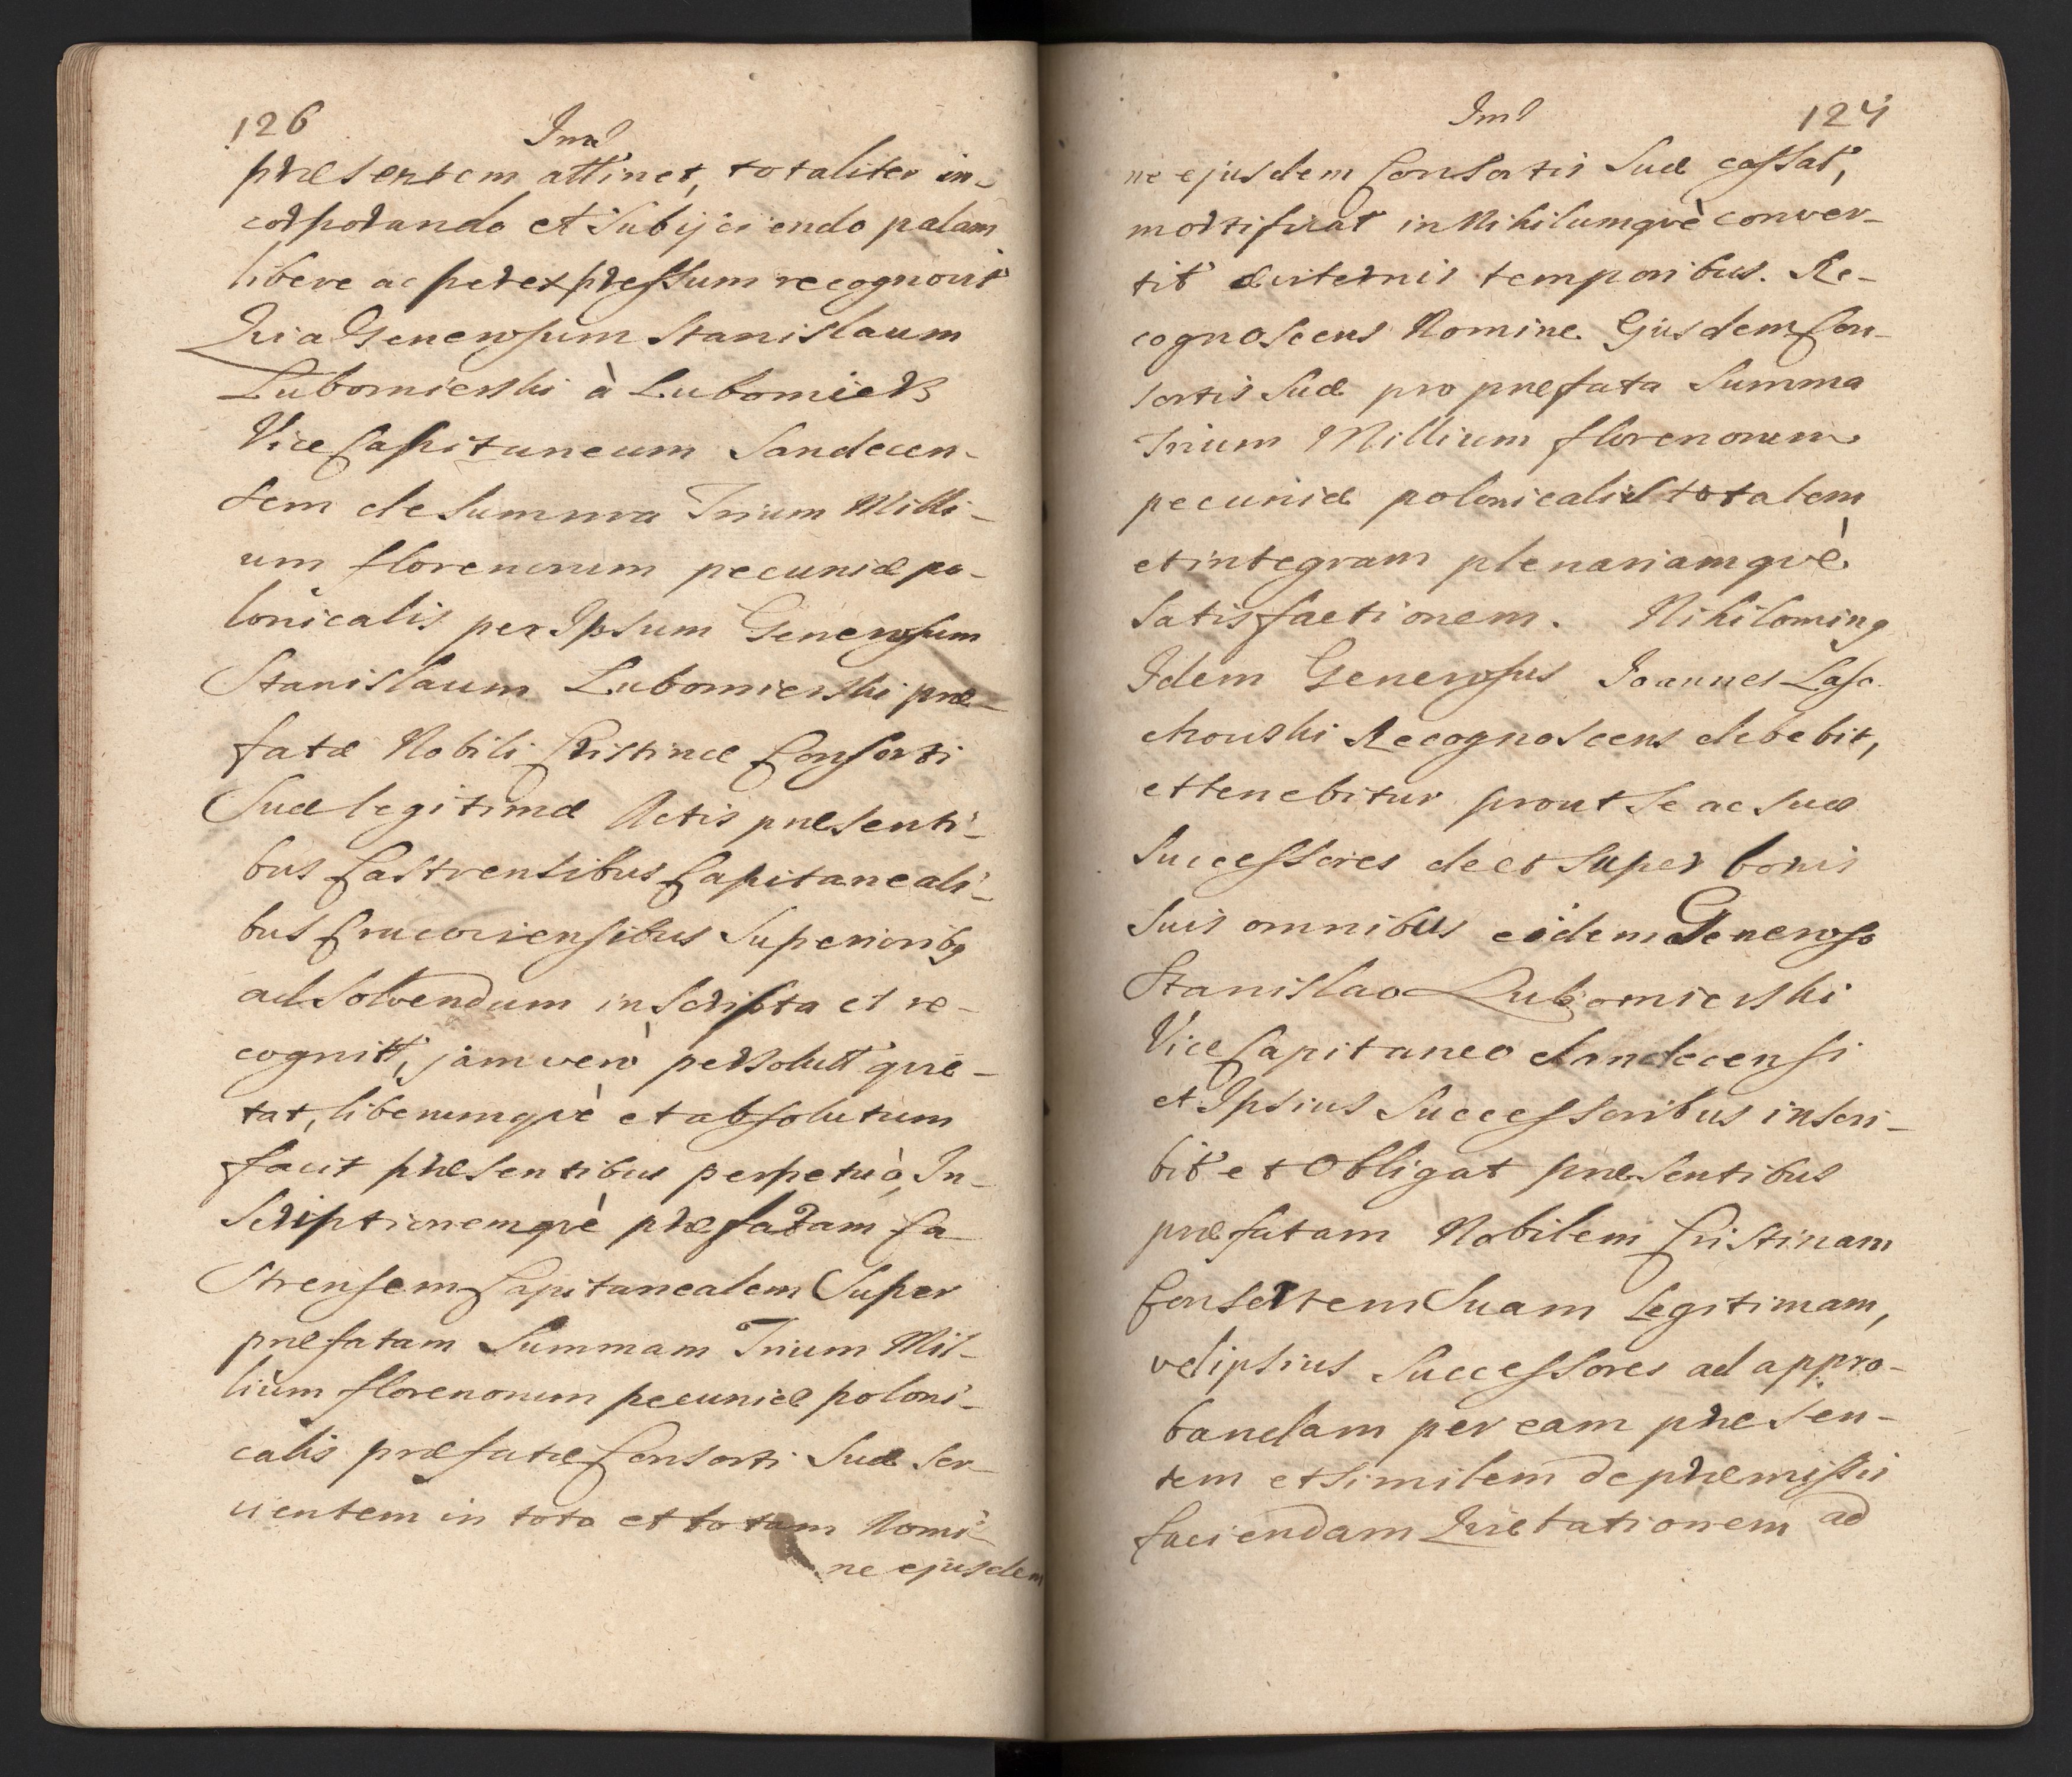 126
Im̃l
præsentem attinet, totaliter in-
corporando et Subijciendo palam
libere ac per expressum recognovit
Quia Generosum Stanislaum
Lubomierski à Lubomierz
Vice Capitaneum Sandecen-
sem de Summa Trium Milli-
um florenorum pecuniæ po-
lonicalis per Ipsum Generosum
Stanislaum Lubomierski præ-
fatæ Nobili Cristinæ Consorti
Suæ legitimæ Actis præsenti-
bus Castrensibus Capitaneali-
bus Cracoviensibus Superioribq
ad Solvendum inscripta et re-
cognitt, jam verò persolutt quie-
tat, liberumqvè et absolutum
facit præsentibus perpetuò, In-
scriptionemqvè præfatam Ca-
strensem Capitanealem Super
præfatam Summam Trium Mil-
lium florenorum pecuniæ poloni-
calis præfatæ Consorti Suæ ser-
vientem in toto et totam Nomi-
ne ejusdem
Iml
127
ne ejusdem Consortis Suæ cassat,
mortificat in Nihilumqvè conver-
tit æviternis temporibus. Re-
cognoscens Nomine Ejusdem Con-
sortis Suæ pro præfata Summa
Trium Millium florenorum
pecuniæ polonicalis totalem
et integram plenariamqvè
Satisfactionem. Nihilominq
Idem Generosus Joannes Laso-
chowski Recognoscens debebit,
et tenebitur prout Se ac suos
Successores de et super bonis
Suis omnibus eidem Generoso
Stanislao Lubomierski
Vice Capitaneo Sandecensi
et Ipsius Successoribus inscri-
bit et Obligat præsentibus
præfatam Nobilem Cristinam
Consortem Suam Legitimam,
vel ipsius Successores ad appro-
bandam per eam præsen-
tem et similem de præmissis
faciendam Quietationem ad